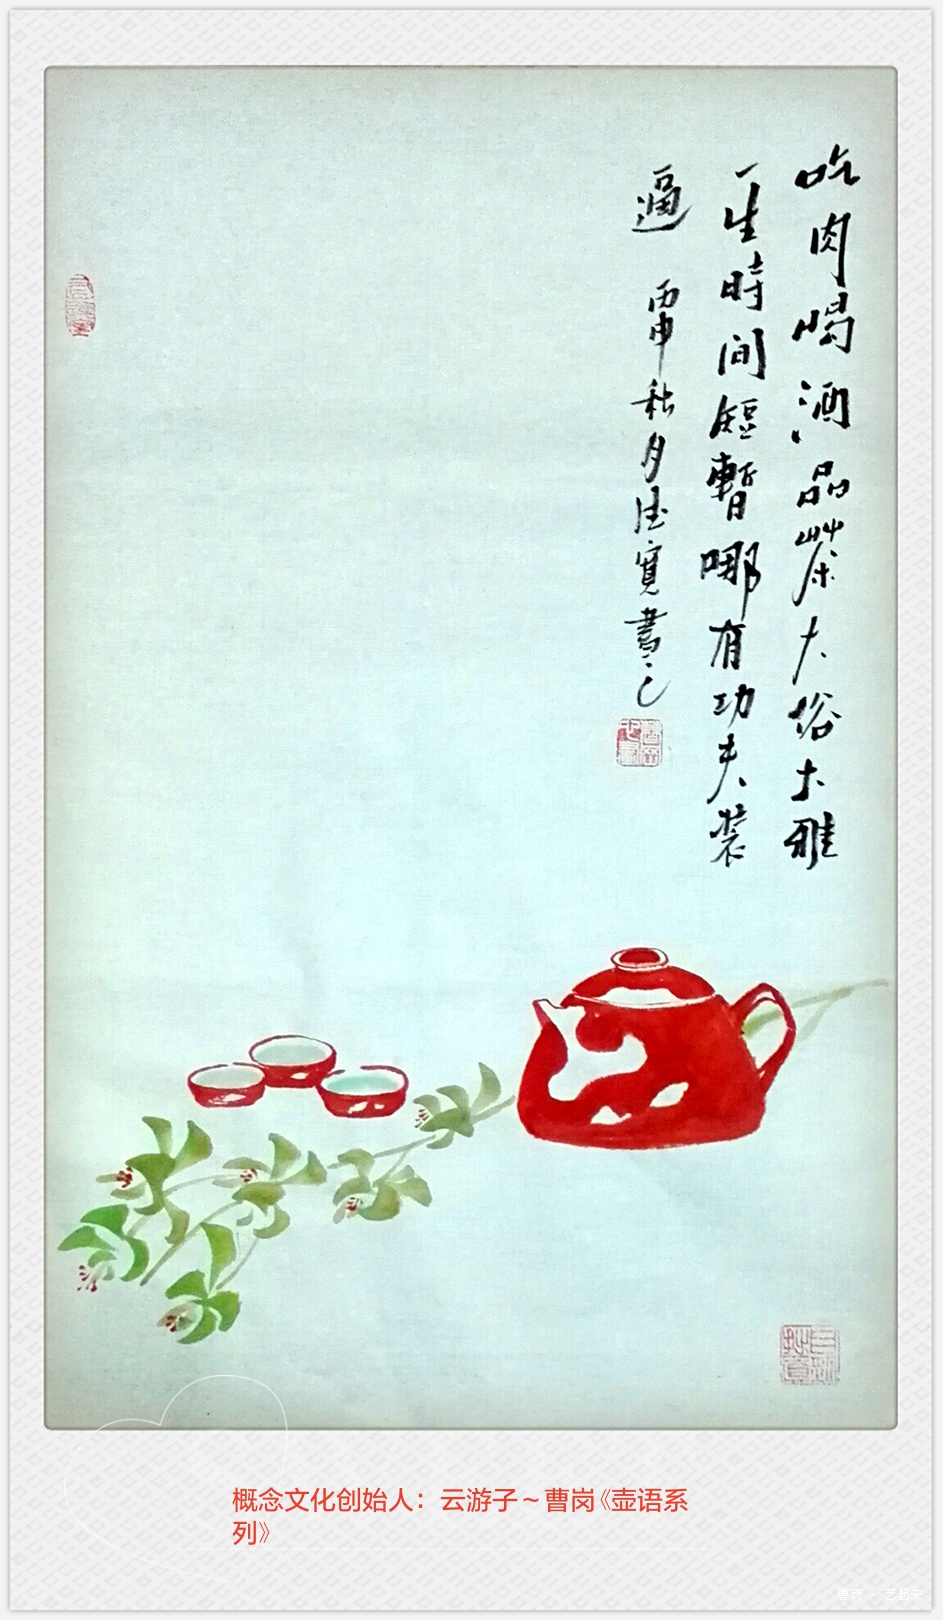 吃肉喝酒品茶大俗大雅
一生時间短暫哪有功夫装
逼 丙申秋月 寛書之
概念文化创始人：云游子～曹岗《壶语系
列》
曹岗 一 艺起来